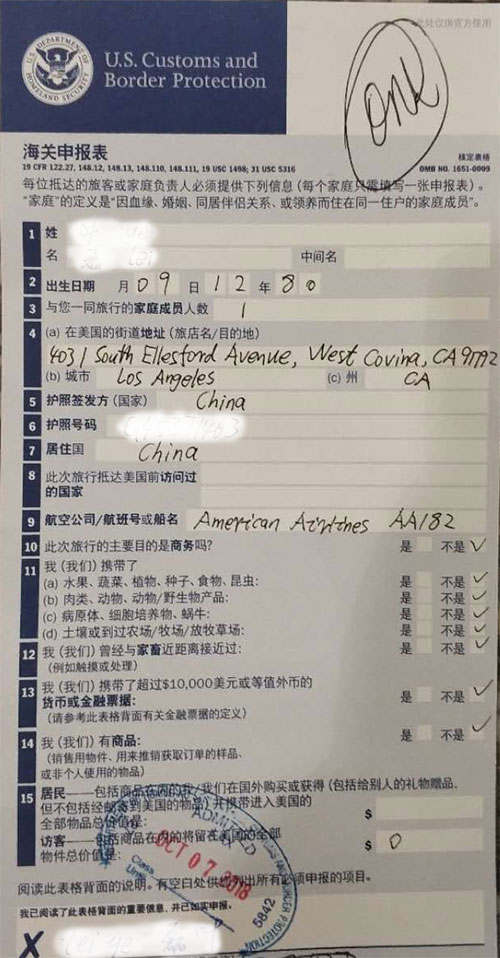 此处仅供官方使用
U.S. DEPARTMENT OF HOMELAND SECURITY
U.S. Customs and
Border Protection
海关申报表
核定表格
19 CFR 122.27, 148.12, 148.13, 148.110, 148.111, 19 USC 1498; 31 USC 5316
OMB NO. 1651-0009
每位抵达的旅客或家庭负责人必须提供下列信息(每个家庭只需填写一张申报表)。
“家庭”的定义是“因血缘、婚姻、同居伴侣关系、或领养而住在同一住户的家庭成员”。
1 姓
名 中间名
2 出生日期 月 09 日 12 年 80
3 与您一同旅行的家庭成员人数 1
4 (a) 在美国的街道地址 (旅店名/目的地)
4031 South Ellesford Avenue, West Covina, CA 91792
(b) 城市 Los Angeles (c) 州 CA
5 护照签发方 (国家) China
6 护照号码
7 居住国 China
8 此次旅行抵达美国前访问过
的国家
9 航空公司/航班号或船名 American Airlines AA182
10 此次旅行的主要目的是商务吗? 是 不是 ✓
11 我 (我们) 携带了
(a) 水果、蔬菜、植物、种子、食物、昆虫: 是 不是 ✓
(b) 肉类、动物、动物/野生物产品: 是 不是 ✓
(c) 病原体、细胞培养物、蜗牛: 是 不是 ✓
(d) 土壤或到过农场/牧场/放牧草场: 是 不是 ✓
12 我 (我们) 曾经与家畜近距离接近过: 是 不是 ✓
(例如触摸或处理)
13 我 (我们) 携带了超过$10,000美元或等值外币的 是 不是 ✓
货币或金融票据:
(请参考此表格背面有关金融票据的定义)
14 我 (我们) 有商品: 是 不是 ✓
(销售用物件、用来推销获取订单的样品、
或非个人使用的物品)
15 居民——包括商品在内的我/我们在国外购买或获得 (包括给别人的礼物赠品,
但不包括经邮寄到美国的物品) 并携带进入美国的
全部物品总价值是: $
访客——包括商品在内的将留在美国的全部
物件总价值是: $ 0
ADMITTED
LAX
OCT 07 2018
Class
Until
5842
阅读此表格背面的说明。有空白处供您列出所有必须申报的项目。
我已阅读了此表格背面的重要信息,并已如实申报。
X